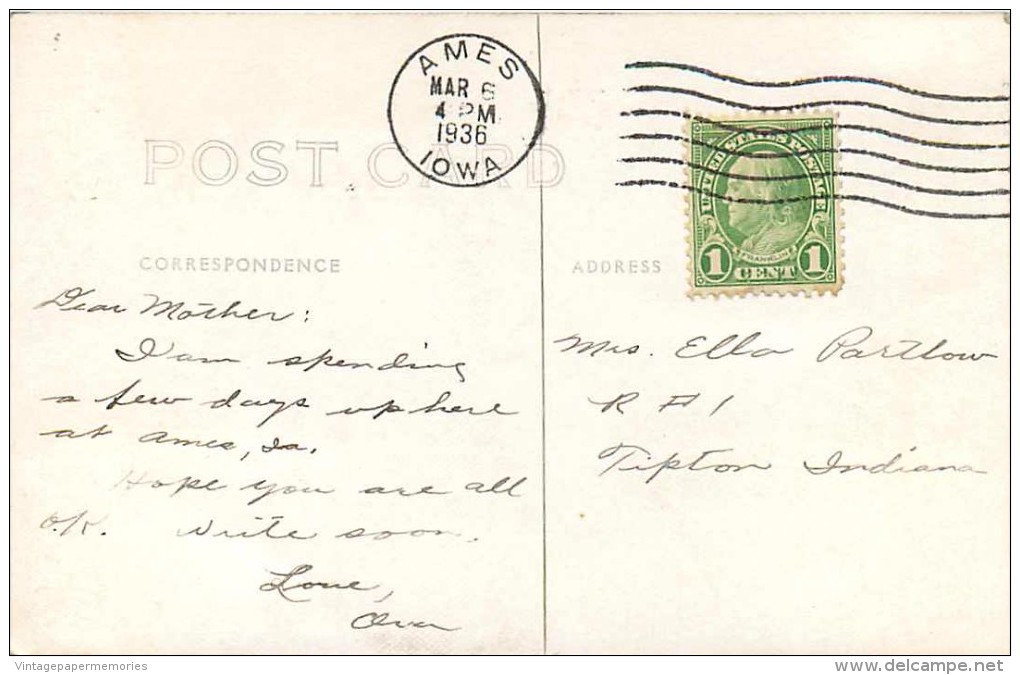 AMES
MAR 6
4 PM
1936
IOWA
POST CARD
UNITED STATES POSTAGE
FRANKLIN
1 CENT 1
CORRESPONDENCE
ADDRESS
Dear Mother:
I am spending
a few days up here
at Ames, Ia.
Hope you are all
O.K. Write soon.
Love,
Mrs. Ella Partlow
R #1
Tipton Indiana
Vintagepapermemories
www.delcampe.net